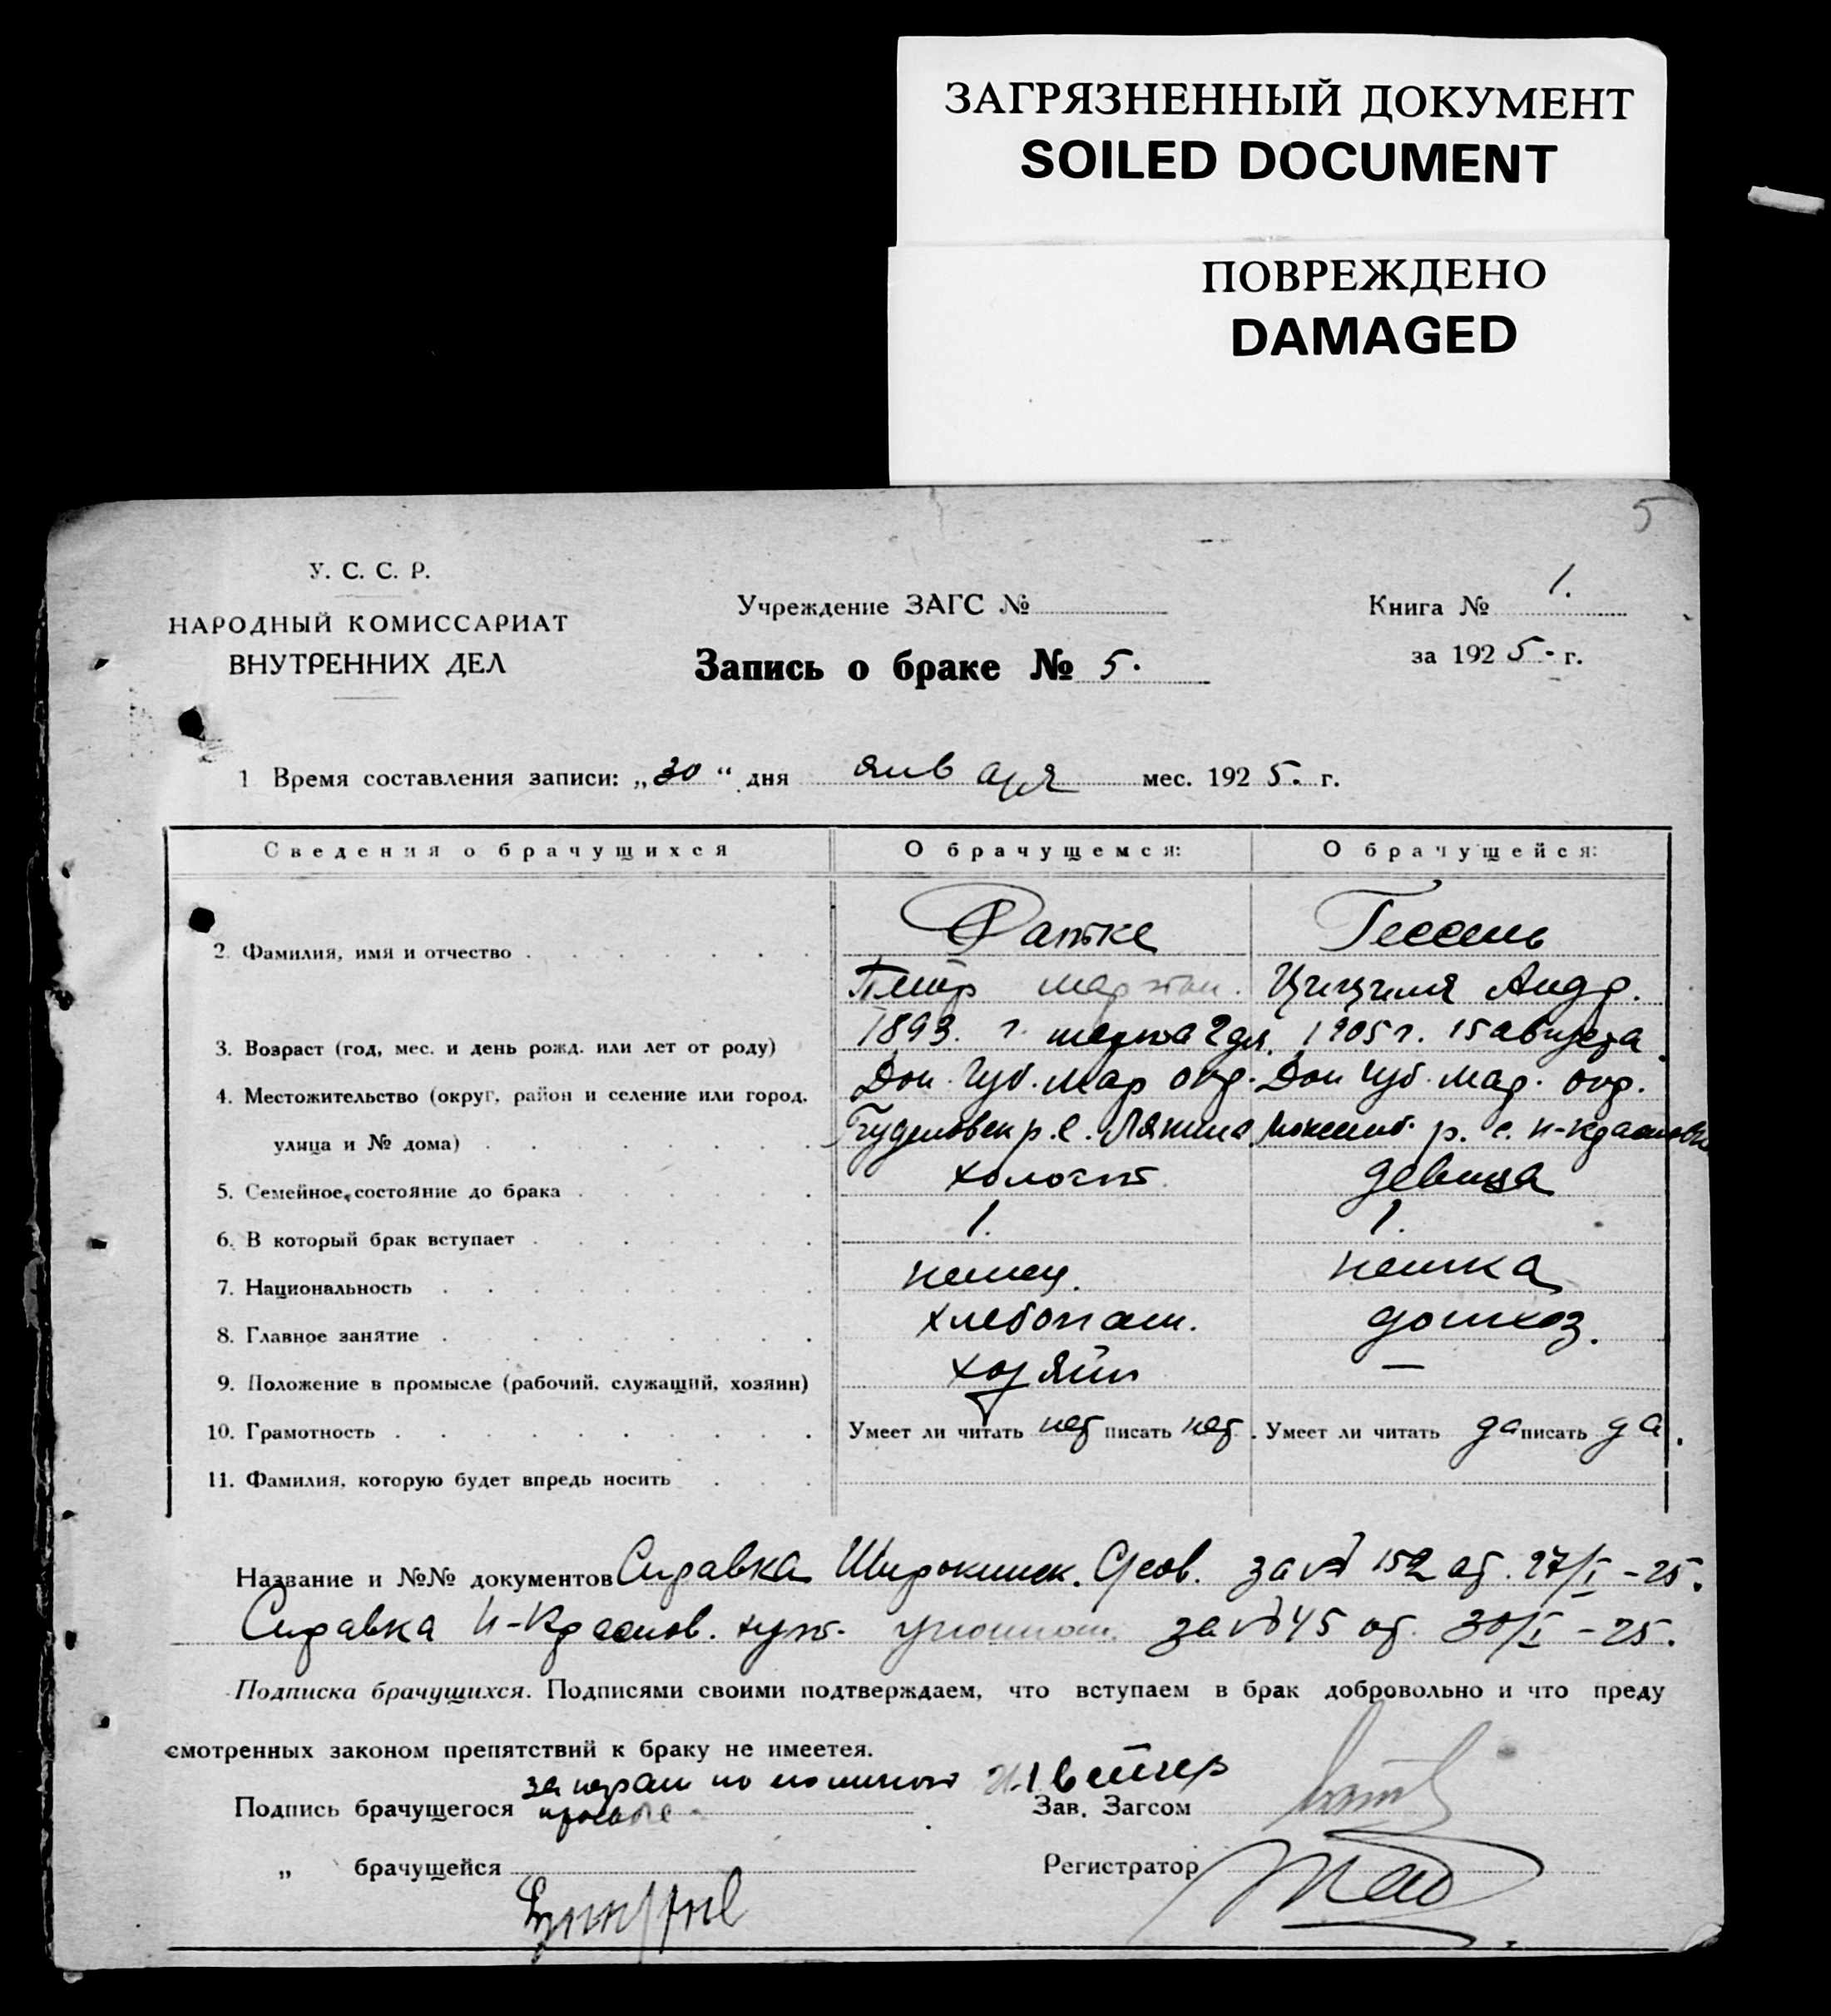 ЗАГРЯЗНЕННЫЙ ДОКУМЕНТ
SOILED DOCUMENT
ПОВРЕЖДЕНО
DAMAGED
5
У. С. С. Р.
НАРОДНЫЙ КОМИССАРИАТ
ВНУТРЕННИХ ДЕЛ
Учреждение ЗАГС №
Запись о браке № 5.
Книга № 1.
за 1925. г.
1 Время составления записи: „30“ дня января мес. 1925. г.
Сведения о брачущихся О брачущемся: О брачущейся:
2. Фамилия, имя и отчество Фатке Гессень
Петр Мартын. Цицилия Андр.
3. Возраст (год, мес. и день рожд. или лет от роду) 1893. г. марта 2 дн. 1905 г. 15 августа.
4. Местожительство (округ, район и селение или город, Дон. Губ. Мар окр. Дон Губ. Мар. окр.
улица и № дома) р. с. р. с. Н-Красновка
5. Семейное состояние до брака холост девица
6. В который брак вступает 1. 1.
7. Национальность немец. немка
8. Главное занятие хлебопаш. домхоз.
9. Положение в промысле (рабочий, служащий, хозяин) хозяин —
10. Грамотность Умеет ли читать нет писать нет. Умеет ли читать да писать да.
11. Фамилия, которую будет впредь носить
Название и №№ документов Справка Широкинск. С/сов. за № 152 от. 27/I - 25.
Справка Н-Краснов. хут. уполном. за № 45 от. 30/I - 25.
Подписка брачущихся. Подписями своими подтверждаем, что вступаем в брак добровольно и что преду
смотренных законом препятствий к браку не имеетея.
за неграм по личной
Подпись брачущегося просьбе
Зав. Загсом
„ брачущейся
Регистратор